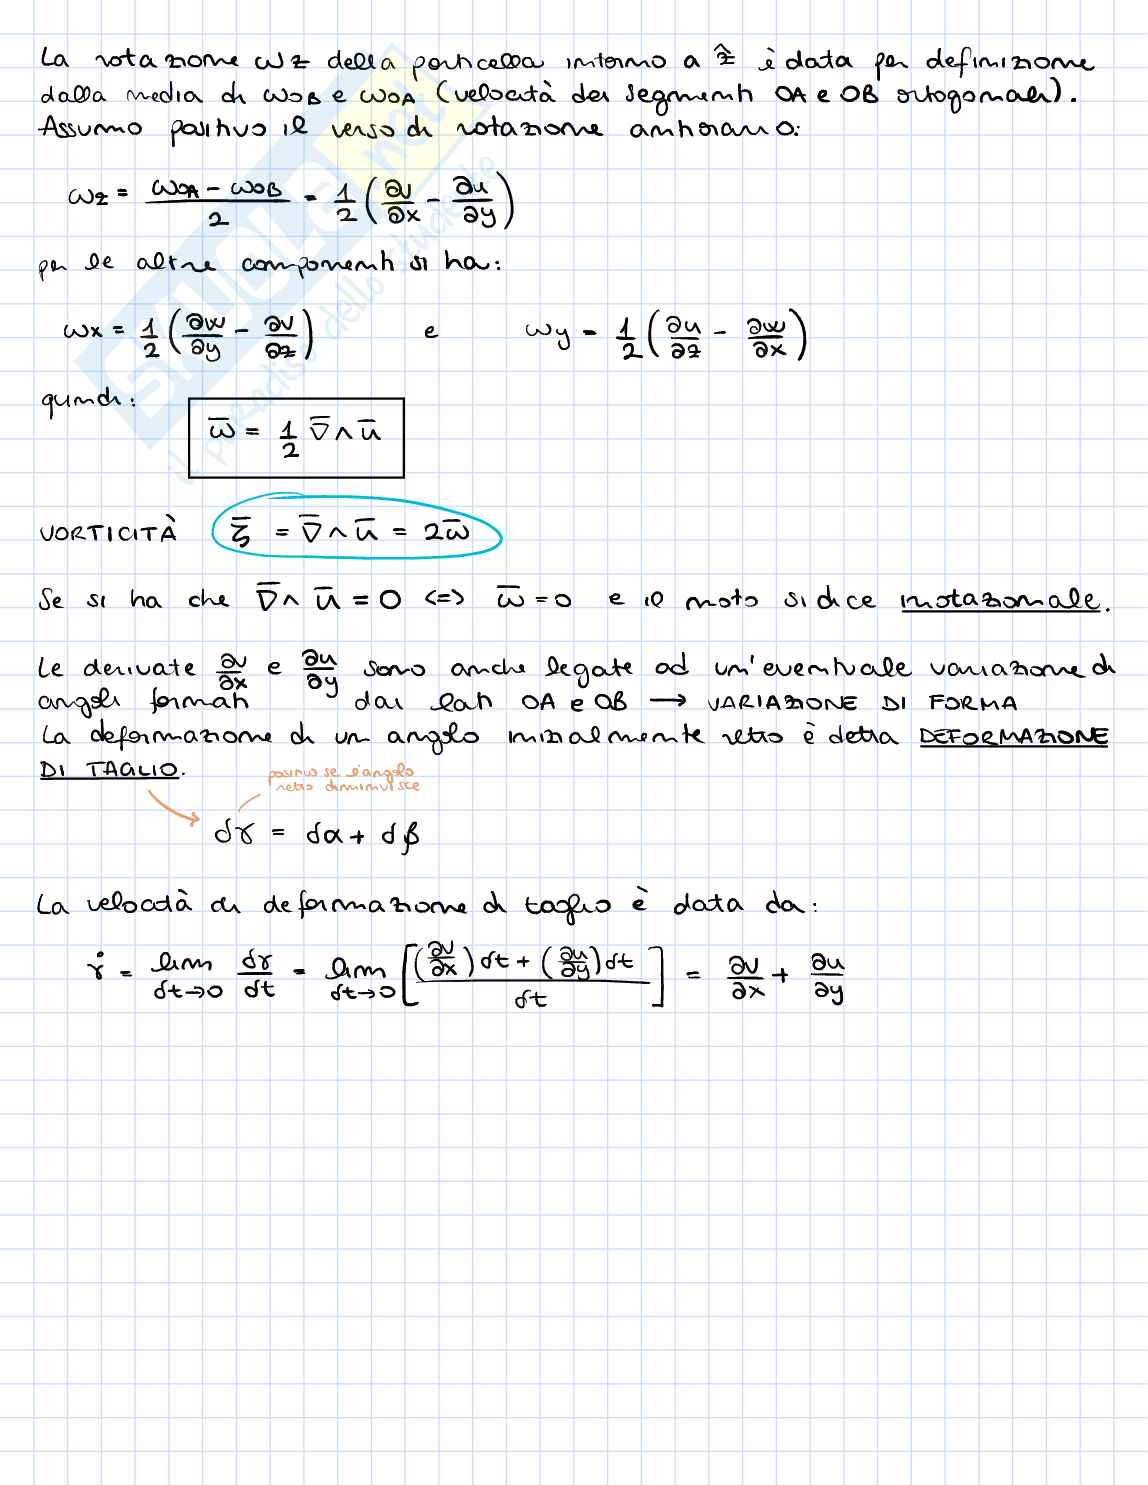 La rotazione ωz della particella intorno a ẑ è data per definizione
dalla media di ωOB e ωOA (velocità dei segmenti OA e OB ortogonali).
Assumo positivo il verso di rotazione antiorario:
ωz = (ωOA - ωOB)/2 = 1/2 (∂v/∂x - ∂u/∂y)
per le altre componenti si ha:
ωx = 1/2 (∂w/∂y - ∂v/∂z) e ωy = 1/2 (∂u/∂z - ∂w/∂x)
quindi:
ω̅ = 1/2 ∇̅ ∧ u̅
VORTICITÀ ζ̅ = ∇̅ ∧ u̅ = 2ω̅
Se si ha che ∇̅ ∧ u̅ = 0 <=> ω̅ = 0 e il moto si dice irrotazionale.
Le derivate ∂v/∂x e ∂u/∂y sono anche legate ad un'eventuale variazione di
angoli formati dai lati OA e OB → VARIAZIONE DI FORMA
La deformazione di un angolo inizialmente retto è detta DEFORMAZIONE
DI TAGLIO.
positivo se l'angolo
retto diminuisce
δγ = δα + δβ
La velocità di deformazione di taglio è data da:
γ̇ = lim δt→0 δγ/δt = lim δt→0 [((∂v/∂x)δt + (∂u/∂y)δt)/δt] = ∂v/∂x + ∂u/∂y
SKUOLA.net
il paradiso dello studente